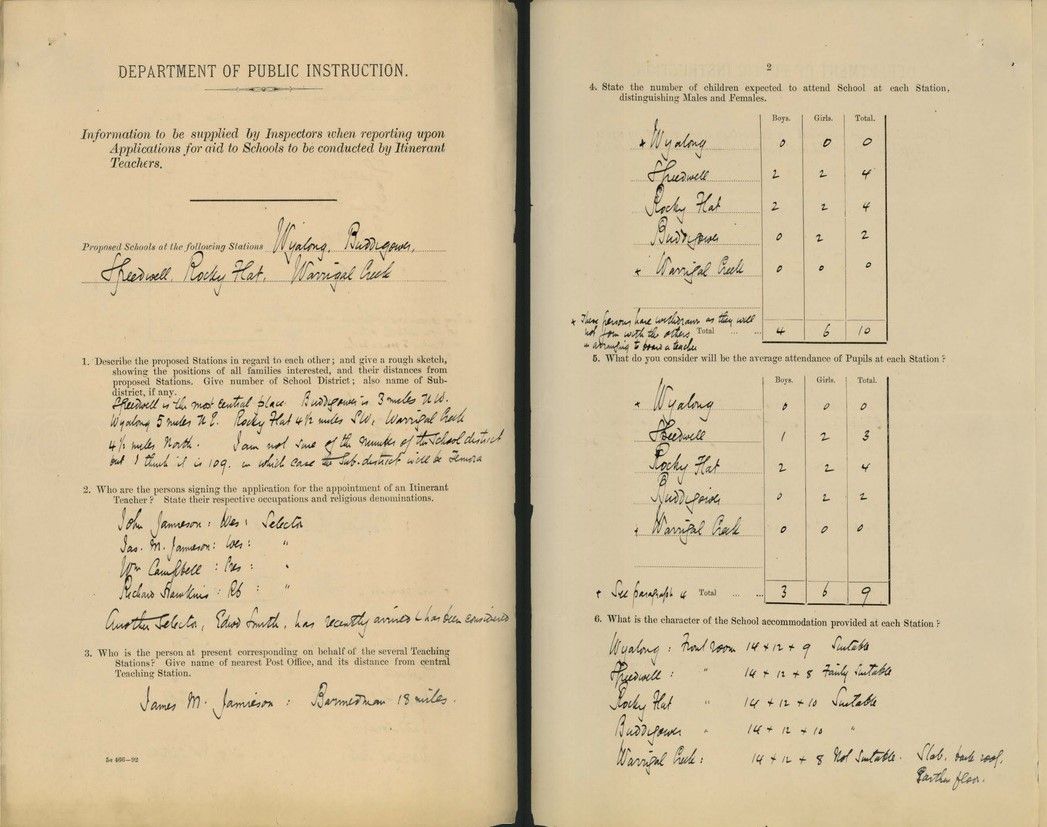 DEPARTMENT OF PUBLIC INSTRUCTION.
Information to be supplied by Inspectors when reporting upon
Applications for aid to Schools to be conducted by Itinerant
Teachers.
Proposed Schools at the following Stations Wyalong, Buddigower,
Speedwell, Rocky Flat, Warrigal Creek
1. Describe the proposed Stations in regard to each other; and give a rough sketch,
showing the positions of all families interested, and their distances from
proposed Stations. Give number of School District; also name of Sub-
district, if any.
Speedwell is the most central place. Buddigower is 3 miles N.W.
Wyalong 5 miles N.E. Rocky Flat 4½ miles S.W. Warrigal Creek
4½ miles North. I am not sure of the number of the School district
but I think it is 109. in which case the Sub-district will be Temora
2. Who are the persons signing the application for the appointment of an Itinerant
Teacher? State their respective occupations and religious denominations.
John Jamieson: Wes: Selector
Jas. M. Jamieson: Wes: "
Wm Campbell: Pres: "
Richard Hawkins: "
Another Selector, Edwd Smith, has recently arrived & has been considered
3. Who is the person at present corresponding on behalf of the several Teaching
Stations? Give name of nearest Post Office, and its distance from central
Teaching Station.
James M. Jamieson: Barmedman 18 miles.
5c 466—92
2
4. State the number of children expected to attend School at each Station,
distinguishing Males and Females.
Boys. Girls. Total.
+ Wyalong 0 0 0
Speedwell 2 2 4
Rocky Flat 2 2 4
Buddigower 0 2 2
+ Warrigal Creek 0 0 0
+ These persons have withdrawn as they will
not join with the others Total ... ... 4 6 10
in arranging to board a teacher
5. What do you consider will be the average attendance of Pupils at each Station?
Boys. Girls. Total.
+ Wyalong 0 0 0
Speedwell 1 2 3
Rocky Flat 2 2 4
Buddigower 0 2 2
+ Warrigal Creek 0 0 0
+ See paragraph 4 Total ... ... 3 6 9
6. What is the character of the School accommodation provided at each Station?
Wyalong: Front room 14 + 12 + 9 Suitable
Speedwell: " 14 + 12 + 8 Fairly Suitable
Rocky Flat " 14 + 12 + 10 Suitable
Buddigower " 14 + 12 + 10 "
Warrigal Creek: 14 + 12 + 8 Not Suitable. Slab, bark roof,
Earthen floor.